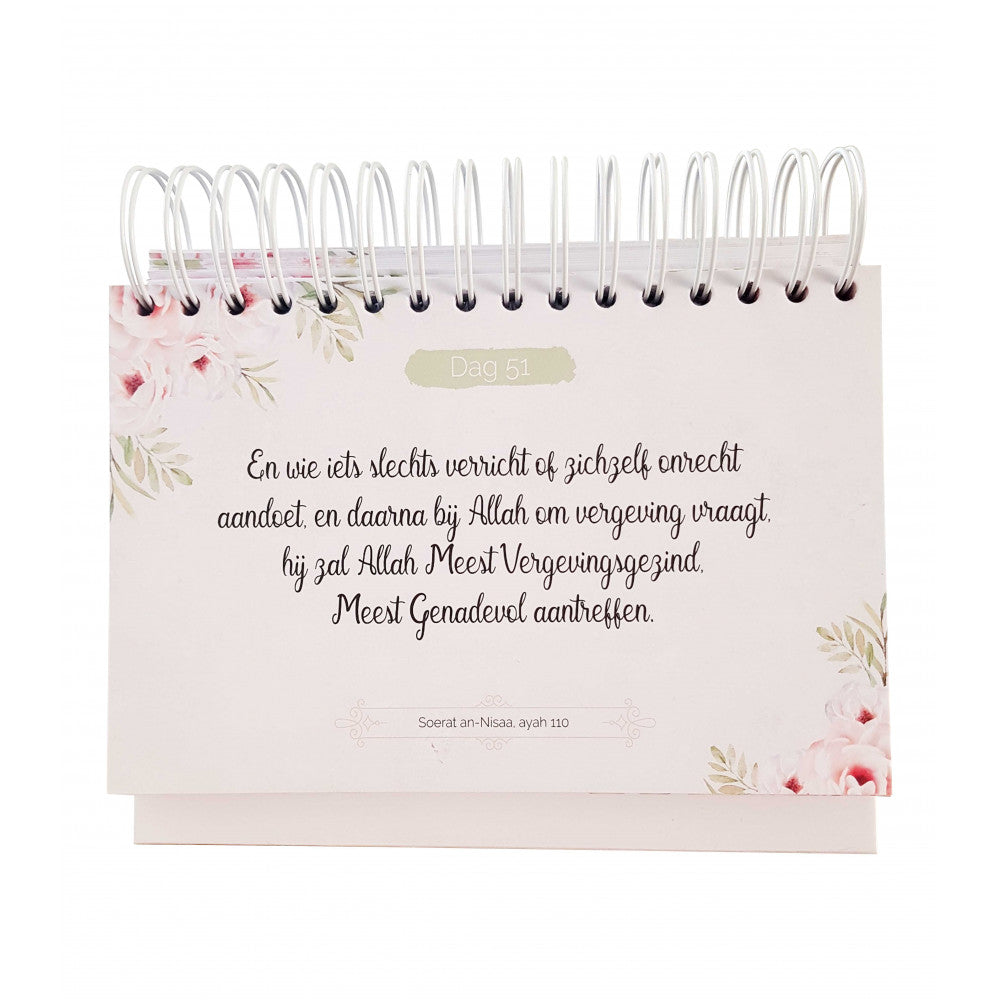 Dag 51
En wie iets slechts verricht of zichzelf onrecht
aandoet, en daarna bij Allah om vergeving vraagt,
hij zal Allah Meest Vergevingsgezind,
Meest Genadevol aantreffen.
Soerat an-Nisaa, ayah 110